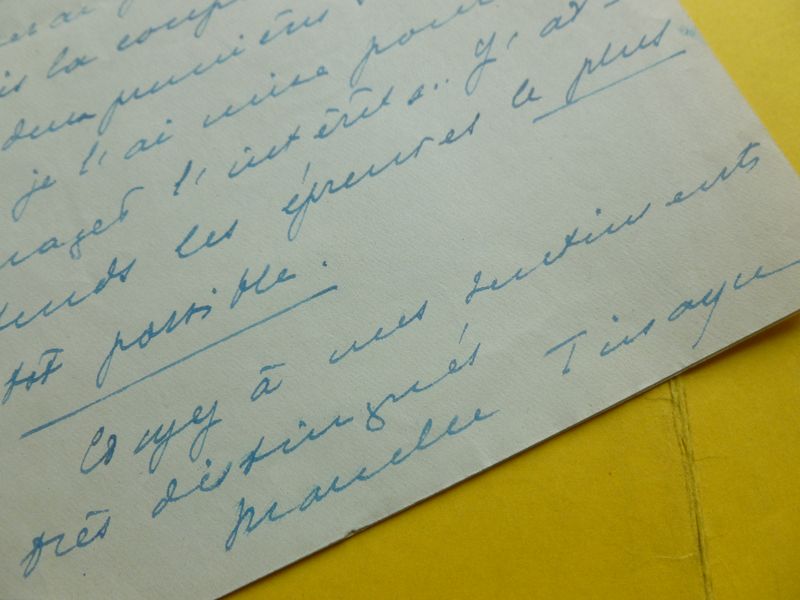 la coup
deux premières
je l'ai mise pour
l'intérêt.. J'at-
tends les épreuves le plus
tôt possible.
Croyez à mes sentiments
très distingués
Marcelle Tinayre